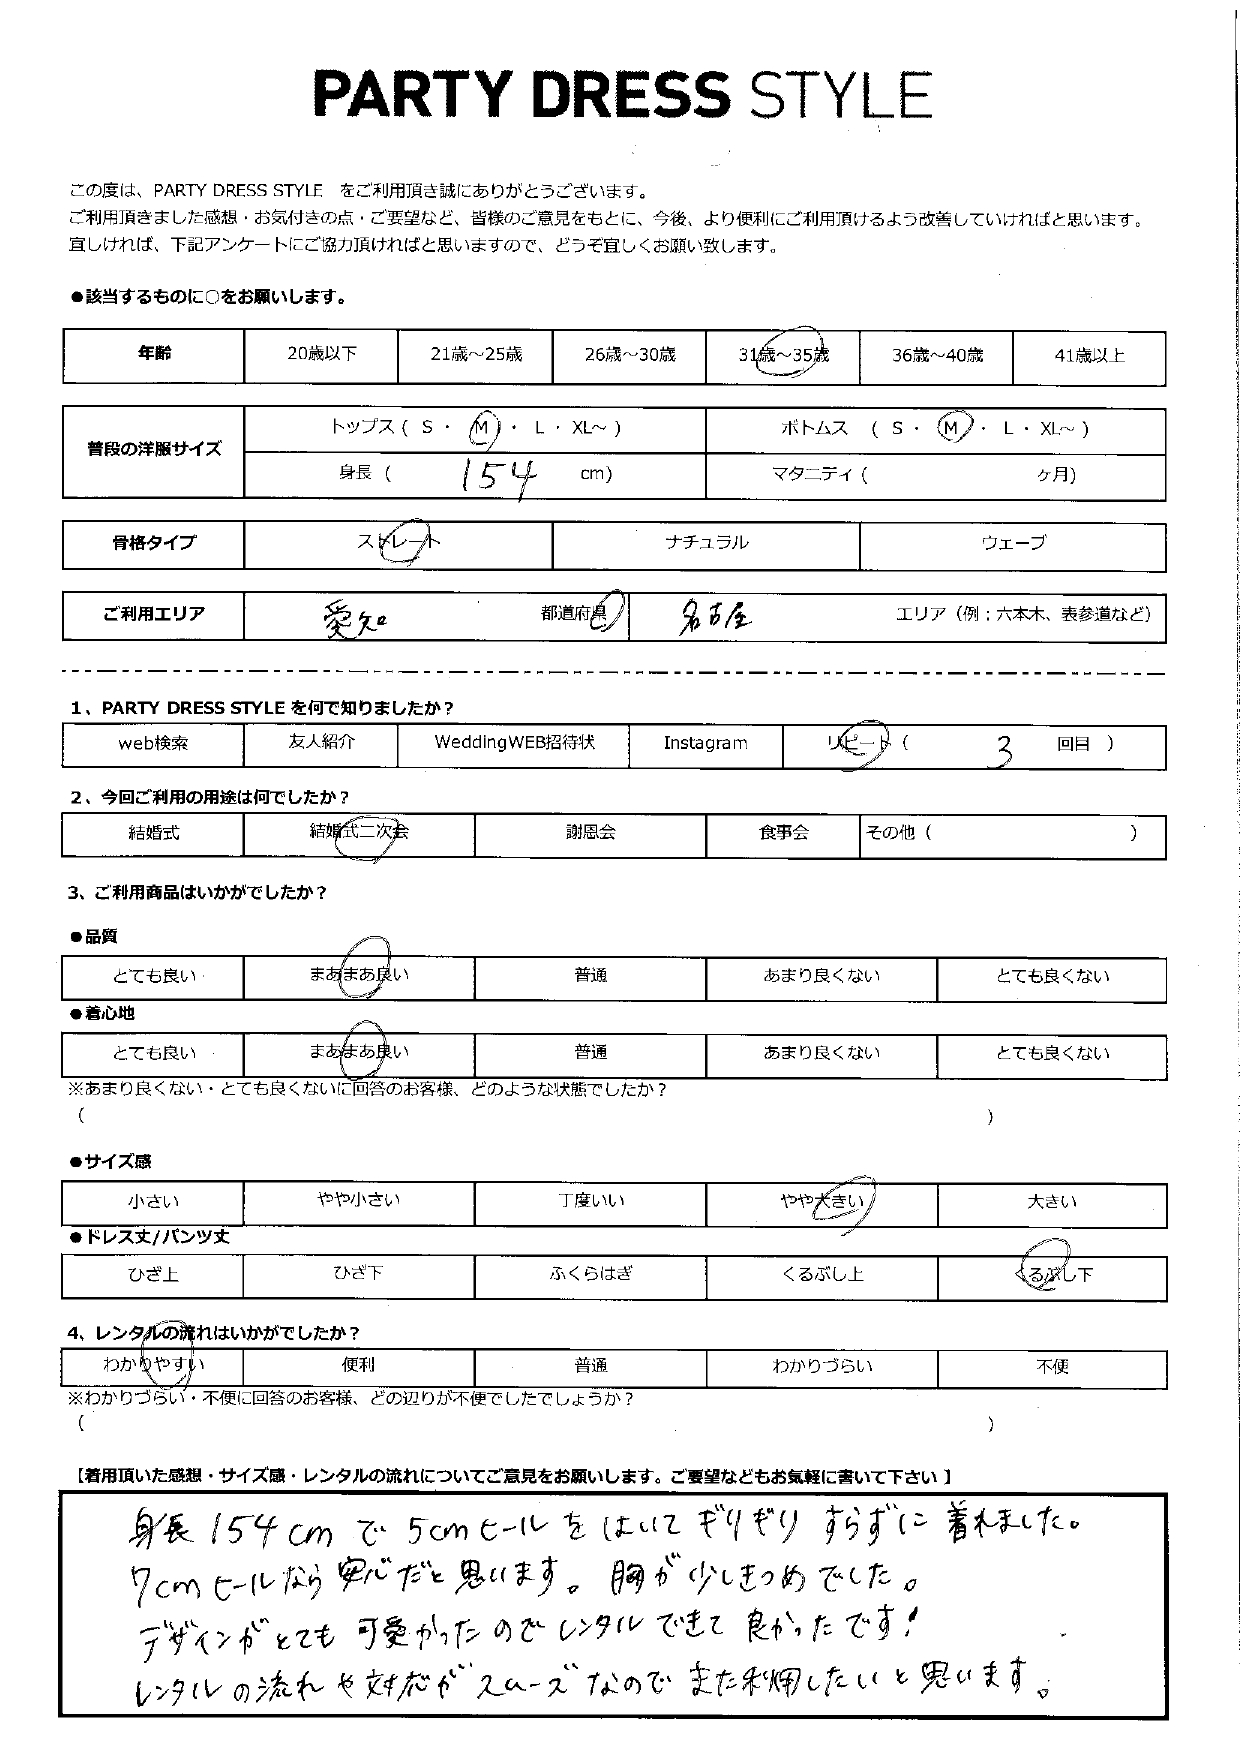 PARTY DRESS STYLE
この度は、PARTY DRESS STYLE をご利用頂き誠にありがとうございます。
ご利用頂きました感想・お気付きの点・ご要望など、皆様のご意見をもとに、今後、より便利にご利用頂けるよう改善していければと思います。
宜しければ、下記アンケートにご協力頂ければと思いますので、どうぞ宜しくお願い致します。
●該当するものに○をお願いします。
年齢 20歳以下 21歳～25歳 26歳～30歳 31歳～35歳 36歳～40歳 41歳以上
普段の洋服サイズ トップス ( S ・ M ・ L ・ XL～ ) ボトムス ( S ・ M ・ L ・ XL～ )
身長 ( 154 cm) マタニティ ( ヶ月)
骨格タイプ ストレート ナチュラル ウェーブ
ご利用エリア 愛知 都道府県 名古屋 エリア（例：六本木、表参道など）
1、PARTY DRESS STYLE を何で知りましたか？
web検索 友人紹介 WeddingWEB招待状 Instagram リピート ( 3 回目 )
2、今回ご利用の用途は何でしたか？
結婚式 結婚式二次会 謝恩会 食事会 その他 ( )
3、ご利用商品はいかがでしたか？
●品質
とても良い まあまあ良い 普通 あまり良くない とても良くない
●着心地
とても良い まあまあ良い 普通 あまり良くない とても良くない
※あまり良くない・とても良くないに回答のお客様、どのような状態でしたか？
( )
●サイズ感
小さい やや小さい 丁度いい やや大きい 大きい
●ドレス丈/パンツ丈
ひざ上 ひざ下 ふくらはぎ くるぶし上 くるぶし下
4、レンタルの流れはいかがでしたか？
わかりやすい 便利 普通 わかりづらい 不便
※わかりづらい・不便に回答のお客様、どの辺りが不便でしたでしょうか？
( )
【着用頂いた感想・サイズ感・レンタルの流れについてご意見をお願いします。ご要望などもお気軽に書いて下さい】
身長154cmで5cmヒールをはいてギリギリすらずに着れました。
7cmヒールなら安心だと思います。胸が少しきつめでした。
デザインがとても可愛かったのでレンタルできて良かったです！
レンタルの流れや対応がスムーズなのでまた利用したいと思います。